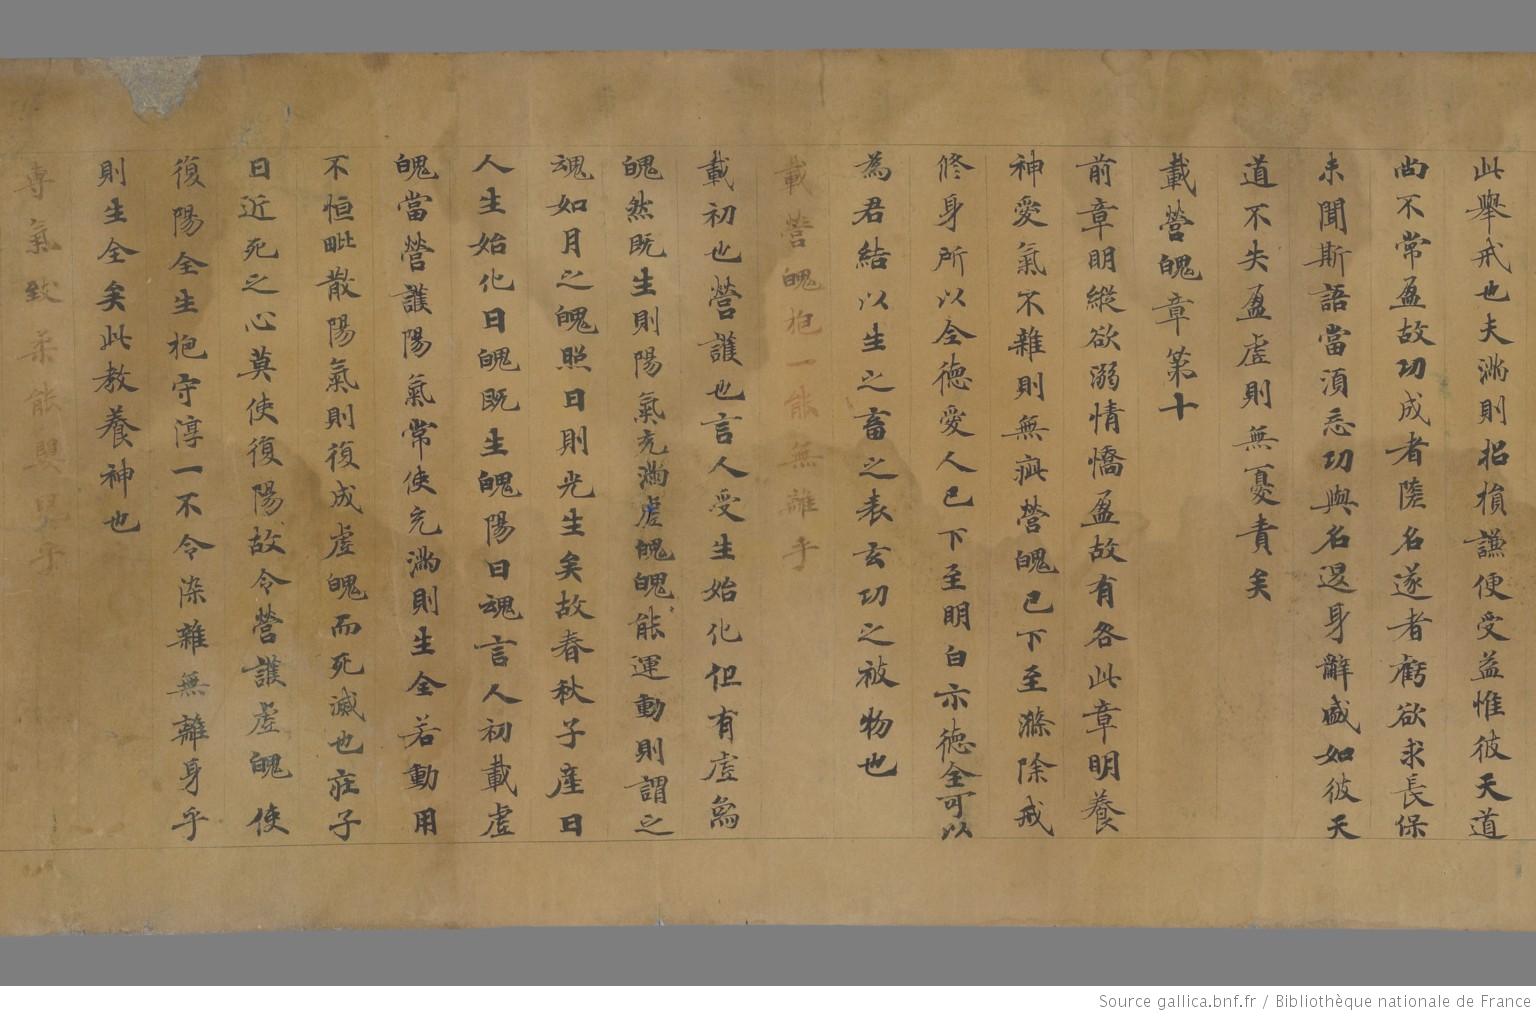 此舉戒也夫滿則招損謙便受益惟彼天道
尚不常盈故功成者隳名遂者虧欲求長保
未聞斯語當須忘功與名退身辭盛如彼天
道不失盈虛則無憂責矣
載營魄章第十
前章明縱欲溺情憍盈故有咎此章明養
神愛氣不雜則無疵營魄已下至滌除戒
修身所以全德愛人已下至明白示德全可以
為君結以生之畜之表玄功之被物也
載營魄抱一能無離乎
載初也營護也言人受生始化但有虛爲
魄然既生則陽氣充滿虛魄魄能運動則謂之
魂如月之魄照日則光生矣故春秋子產曰
人生始化曰魄既生魄陽曰魂言人初載虛
魄當營護陽氣常使充滿則生全若動用
不恒毗散陽氣則復成虛魄而死滅也莊子
曰近死之心莫使復陽故令營護虛魄使
復陽全生抱守淳一不令染雜無離身乎
則生全矣此教養神也
專氣致柔能嬰兒乎
Source gallica.bnf.fr / Bibliothèque nationale de France